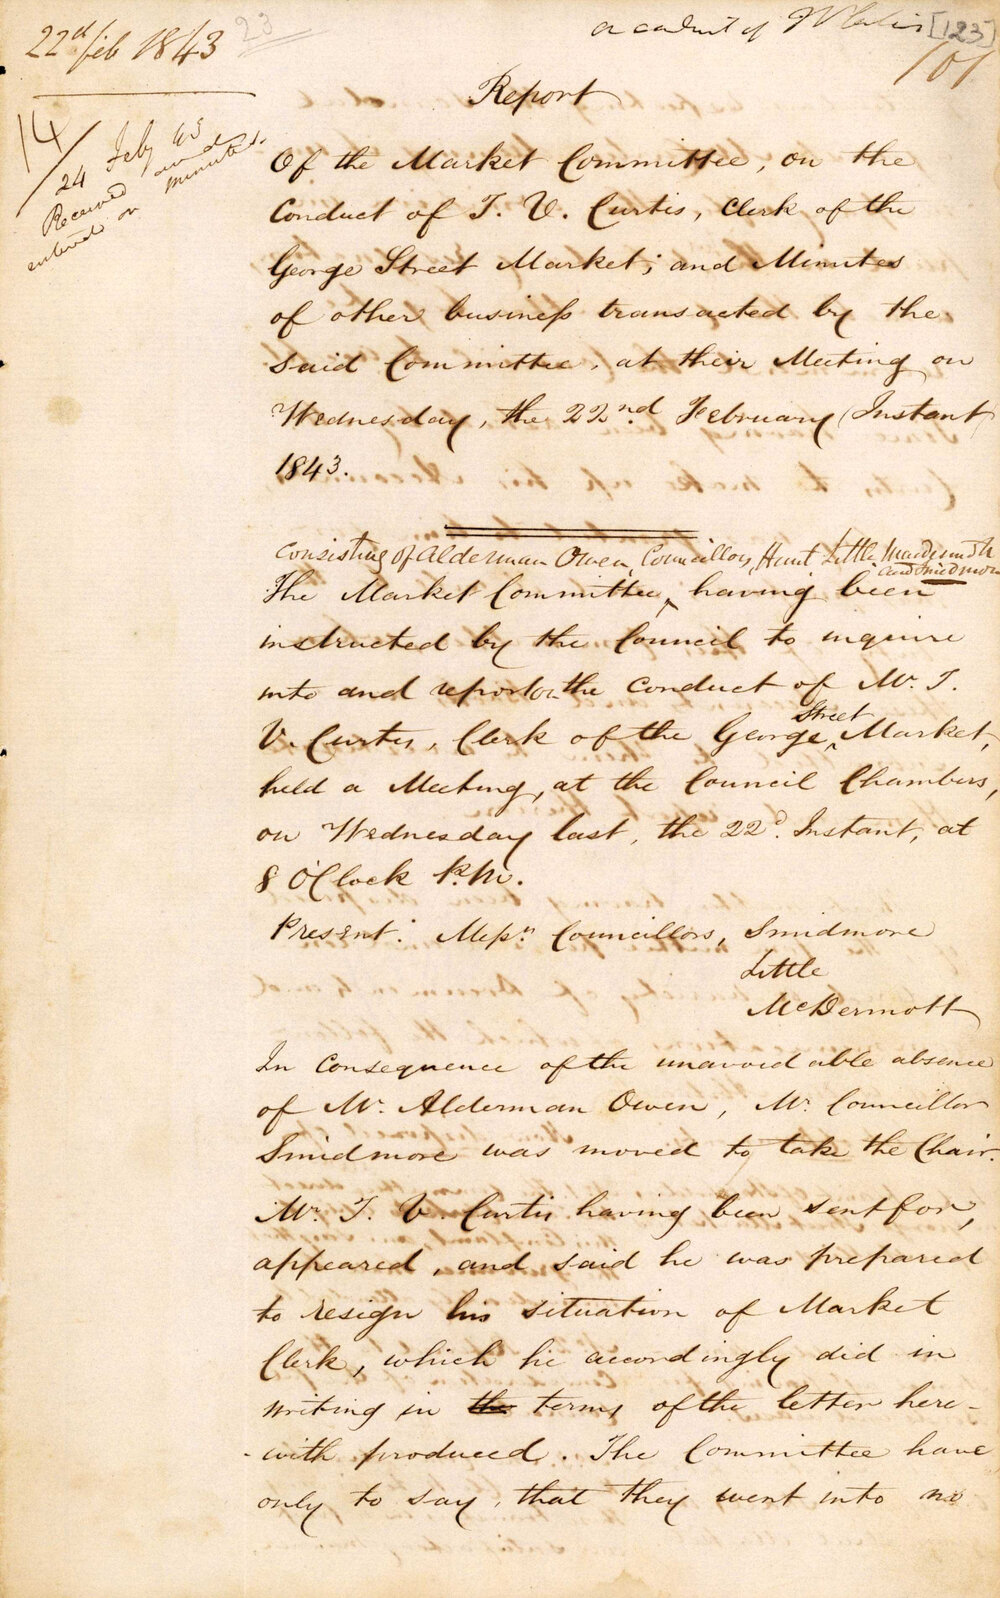 22d feb 1843
23
[123]
101
14
24 Feby 43
Received and
entered on minutes.
Report
Of the Market Committee, on the
Conduct of T. V. Curtis, Clerk of the
George Street Market; and Minutes
of other business transacted by the
said Committee, at their Meeting on
Wednesday, the 22nd February Instant
1843.
Consisting of Alderman Owen Councillors, Hunt Little
and Smidmore
The Market Committee, having been
instructed by the Council to inquire
into and report on the conduct of Mr. T.
Street
V. Curtis, Clerk of the George Market,
held a Meeting, at the Council Chambers,
on Wednesday last, the 22d. Instant, at
8 O'Clock P.M.
Present: Messrs Councillors, Smidmore
Little
McDermott
In Consequence of the unavoidable absence
of Mr. Alderman Owen, Mr. Councillor
Smidmore was moved to take the Chair.
Mr. T. V. Curtis having been sent for,
appeared, and said he was prepared
to resign his situation of Market
Clerk, which he accordingly did in
writing in the terms of the letter here-
-with produced. The Committee have
only to say, that they went into no